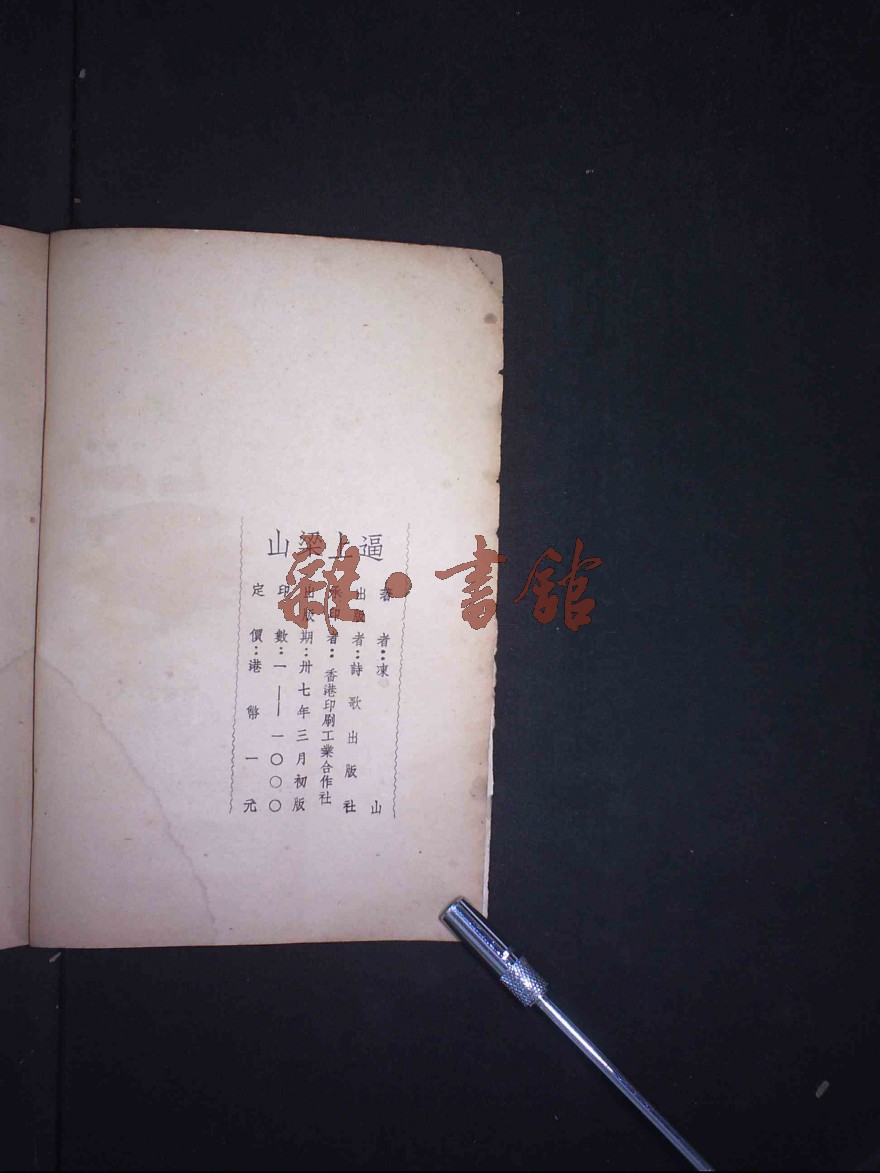 逼上梁山
著者：凍山
出版者：詩歌出版社
承印者：香港印刷工業合作社
出版期：卅七年三月初版
印數：一——一〇〇〇
定價：港幣一元
雜·書館